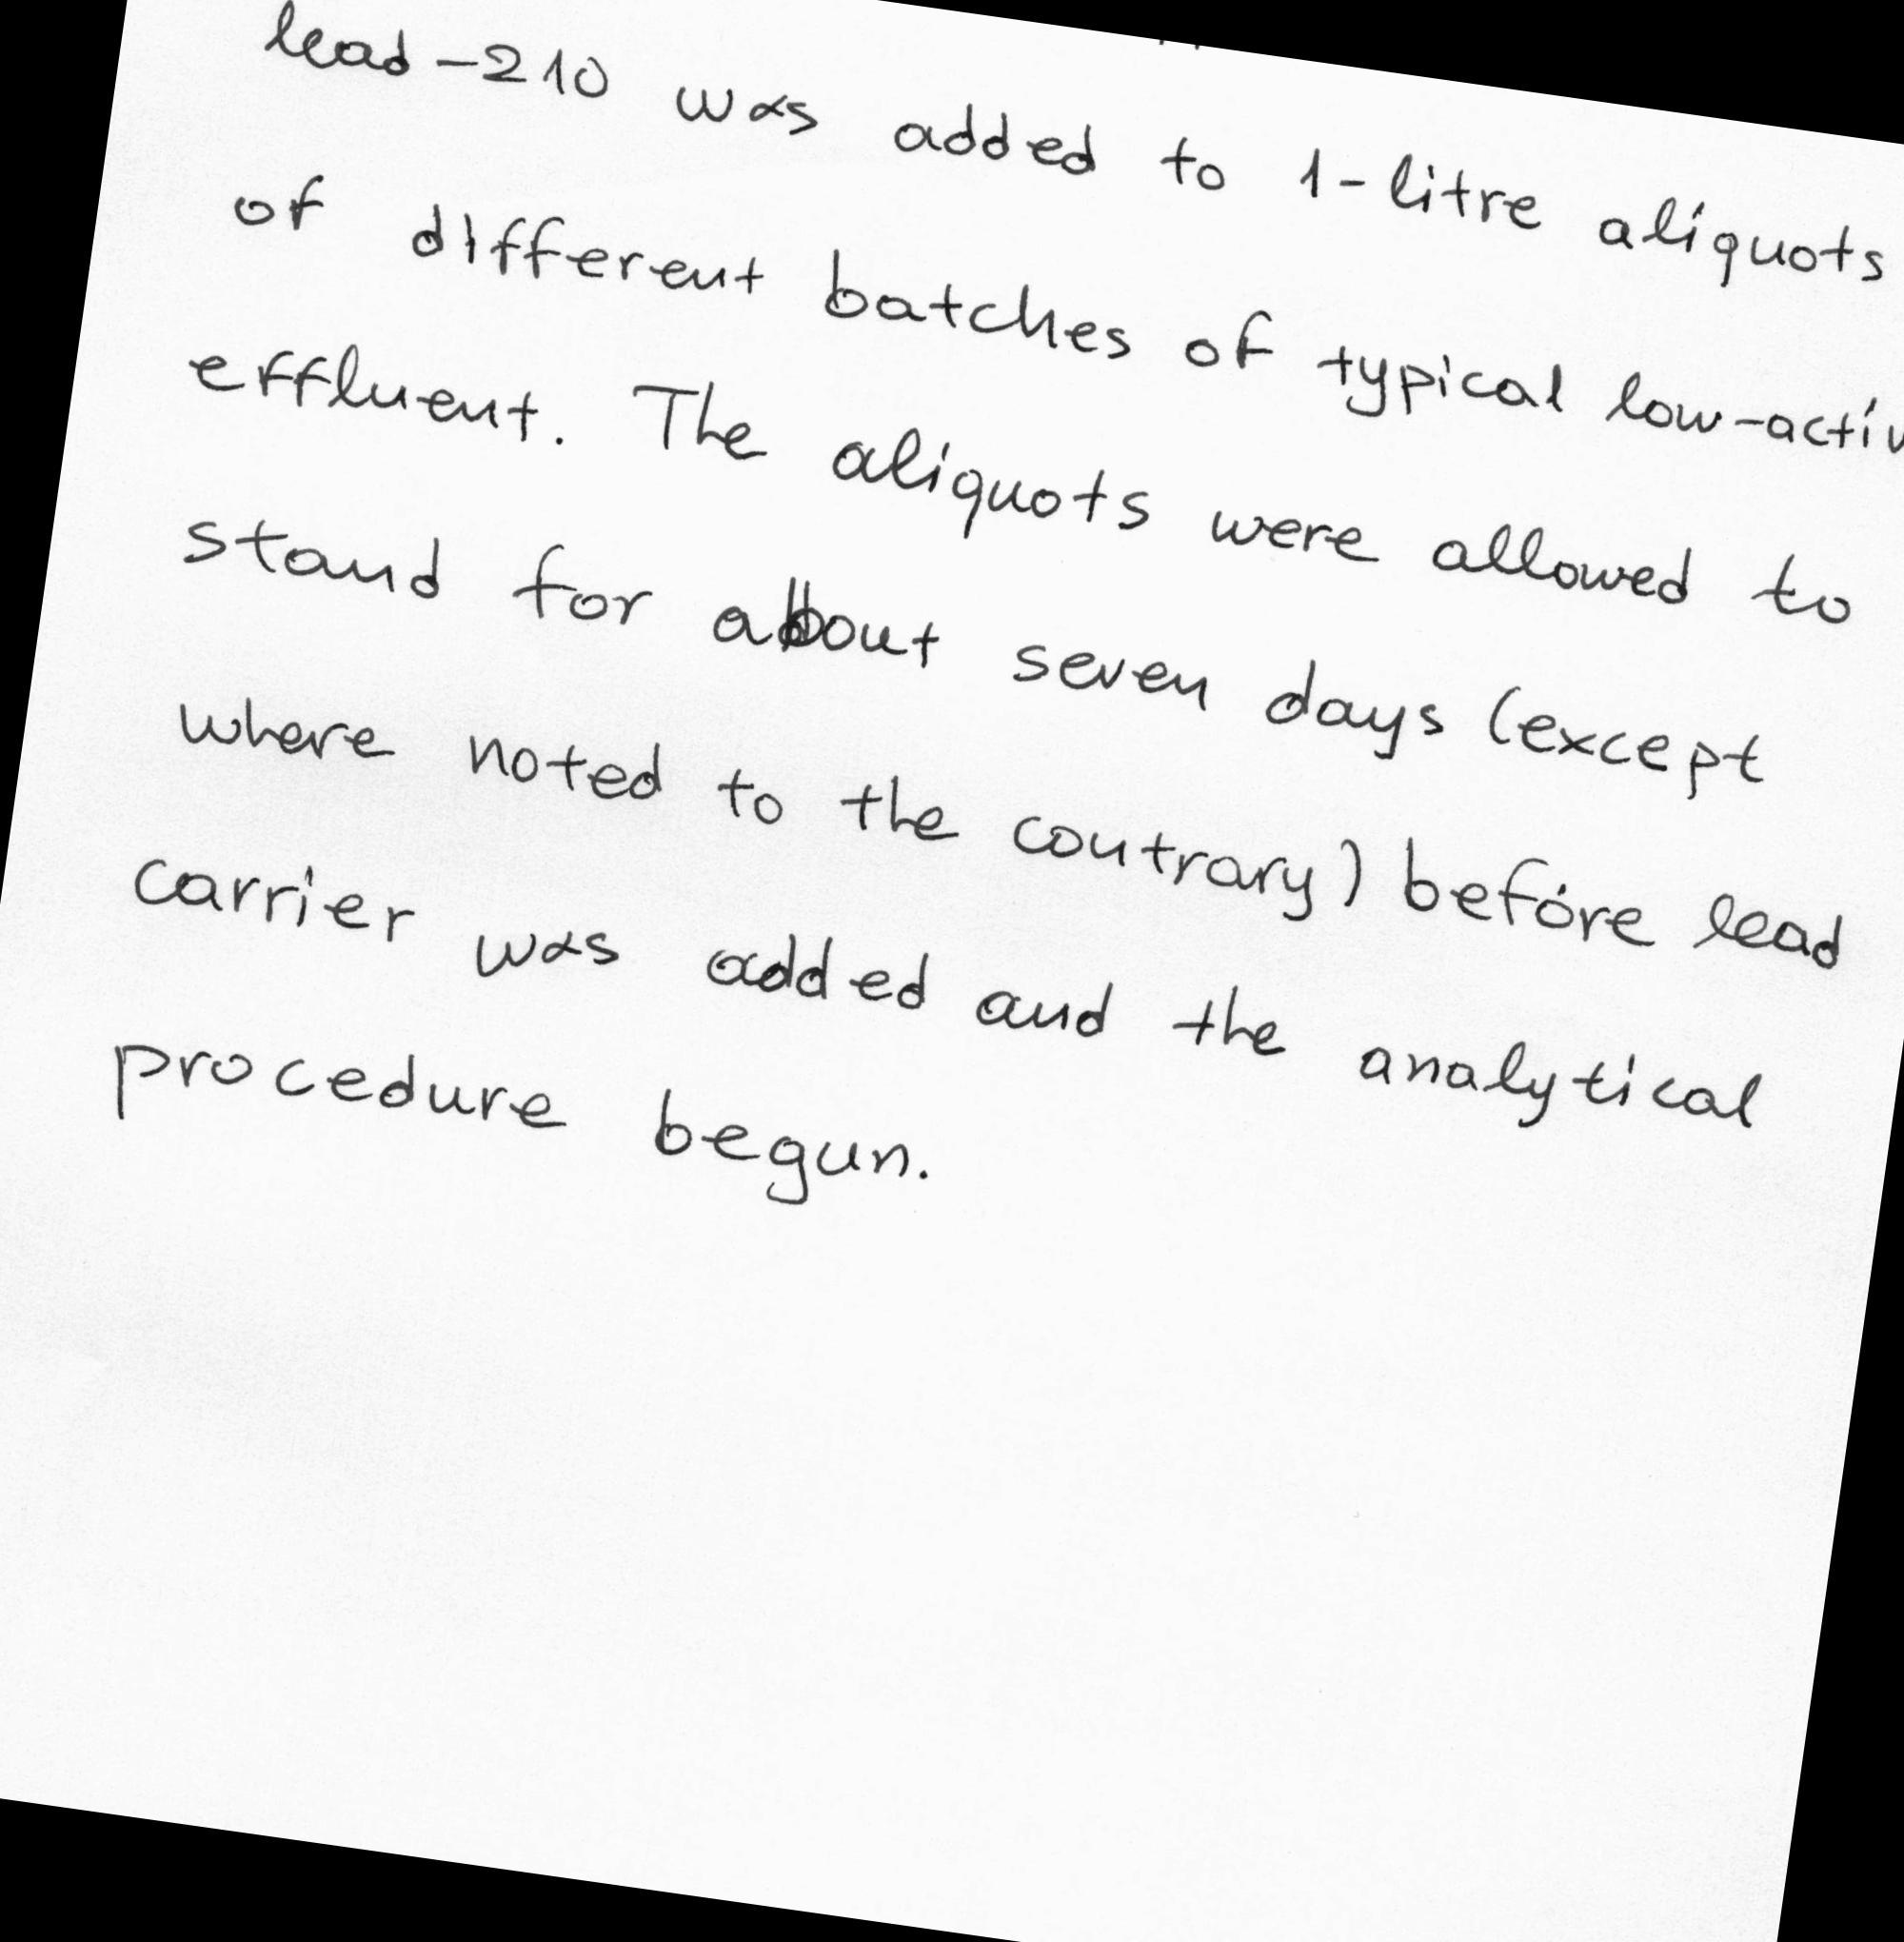 lead-210 was added to 1-litre aliquots
of different batches of typical low-activ
effluent. The aliquots were allowed to
stand for about seven days (except
where noted to the contrary) before lead
carrier was added and the analytical
procedure begun.